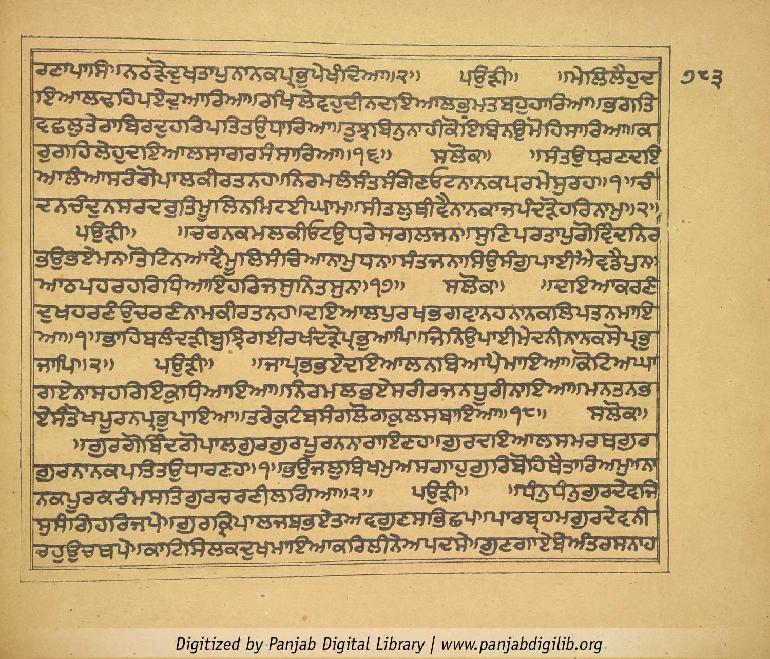 ਰਣਾਪਾਸਿ॥ਨਠੜੋਦੁਖਤਾਪੁਨਾਨਕਪ੍ਰਭੁਪੇਖੰਦਿਆ॥੨॥ ਪਉੜੀ॥ ॥ਮੇਲਿਲੈਹੁਦ ੭੮੩
ਇਆਲਢਹਿਪਏਦੁਆਰਿਆ॥ਰਖਿਲੇਵਹੁਦੀਨਦਾਇਆਲਭ੍ਰਮਤਬਹੁਹਾਰਿਆ॥ਭਗਤਿ
ਵਛਲੁਤੇਰਾਬਿਰਦੁਹਰਿਪਤਿਤਉਧਾਰਿਆ॥ਤੁਝਬਿਨੁਨਾਹੀਕੋਇਬਿਨਉਮੋਹਿਸਾਰਿਆ॥ਕ
ਰੁਗਹਿਲੇਹੁਦਇਆਲਸਾਗਰਸੰਸਾਰਿਆ॥੧੬॥ ਸਲੋਕ॥ ॥ਸੰਤਉਧਰਣਦਇ
ਆਲੰਆਸਰੰਗੋਪਾਲਕੀਰਤਨਹ॥ਨਿਰਮਲੰਸੰਤਸੰਗੇਣਓਟਨਾਨਕਪਰਮੇਸੁਰਹ॥੧॥ਚੰ
ਦਨਚੰਦੁਨਸਰਦਰੁਤਿਮੂਲਿਨਮਿਟਈਘਾਮ॥ਸੀਤਲੁਥੀਵੈਨਾਨਕਾਜਪੰਦੜੋਹਰਿਨਾਮੁ॥੨॥
ਪਉੜੀ॥ ॥ਚਰਨਕਮਲਕੀਓਟਉਧਰੇਸਗਲਜਨ॥ਸੁਣਿਪਰਤਾਪੁਗੋਵਿੰਦਨਿਰ
ਭਉਭਏਮਨ॥ਤੋਟਿਨਆਵੈਮੂਲਿਸੰਚਿਆਨਾਮੁਧਨ॥ਸੰਤਜਨਾਸਿਉਸੰਗੁਪਾਈਐਵਡੈਪੁਨ॥
ਆਠਪਹਰਹਰਿਧਿਆਇਹਰਿਜਸੁਨਿਤਸੁਨ॥੧੭॥ ਸਲੋਕ॥ ॥ਦਇਆਕਰਣੰ
ਦੁਖਹਰਣੰਉਚਰਣੰਨਾਮਕੀਰਤਨਹ॥ਦਇਆਲਪੁਰਖਭਗਵਾਨਹਨਾਨਕਲਿਪਤਨਮਾਇ
ਆ॥੧॥ਭਾਹਿਬਲੰਦੜੀਬੁਝਿਗਈਰਖੰਦੜੋਪ੍ਰਭੁਆਪਿ॥ਜਿਨਿਉਪਾਈਮੇਦਨੀਨਾਨਕਸੋਪ੍ਰਭੁ
ਜਾਪਿ॥੨॥ ਪਉੜੀ॥ ॥ਜਾਪ੍ਰਭਭਏਦਇਆਲਨਬਿਆਪੈਮਾਇਆ॥ਕੋਟਿਅਘਾ
ਗਏਨਾਸਹਰਿਇਕੁਧਿਆਇਆ॥ਨਿਰਮਲਭਏਸਰੀਰਜਨਧੂਰੀਨਾਇਆ॥ਮਨਤਨਭ
ਏਸੰਤੋਖਪੂਰਨਪ੍ਰਭੁਪਾਇਆ॥ਤਰੇਕੁਟੰਬਸੰਗਿਲੋਗਕੁਲਸਬਾਇਆ॥੧੮॥ ਸਲੋਕ॥
॥ਗੁਰਗੋਬਿੰਦਗੋਪਾਲਗੁਰਗੁਰਪੂਰਨਨਾਰਾਇਣਹ॥ਗੁਰਦਇਆਲਸਮਰਥਗੁਰ
ਗੁਰਨਾਨਕਪਤਿਤਉਧਾਰਣਹ॥੧॥ਭਉਜਲੁਬਿਖਮੁਅਸਗਾਹੁਗੁਰਿਬੋਹਿਥੈਤਾਰਿਅਮੁ॥ਨਾ
ਨਕਪੂਰਕਰੰਮਸਤਿਗੁਰਚਰਣੀਲਗਿਆ॥੨॥ ਪਉੜੀ॥ ॥ਧੰਨੁਧੰਨੁਗੁਰਦੇਵਜਿ
ਸੁਸੰਗਿਹਰਿਜਪੇ॥ਗੁਰਕ੍ਰਿਪਾਲਜਬਭਏਤਅਵਗੁਣਸਭਿਛਪੇ॥ਪਾਰਬ੍ਰਹਮਗੁਰਦੇਵਨੀ
ਚਹੁਉਚਥਪੇ॥ਕਾਟਿਸਿਲਕਦੁਖਮਾਇਆਕਰਿਲੀਨੇਅਪਦਸੇ॥ਗੁਣਗਾਏਬੇਅੰਤਰਸਨਾਹ
Digitized by Panjab Digital Library | www.panjabdigilib.org